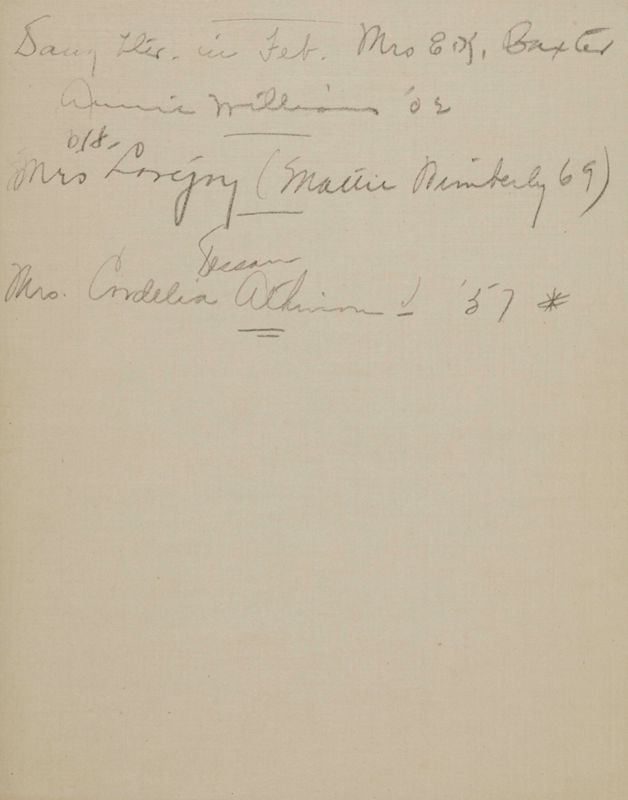 Daughter. in Feb. Mrs E.K. Baxter
Annie Williams '02
Mrs Lovejoy (Mattie Wimberly 69)
Mrs. Cordelia Atkinson '57 *